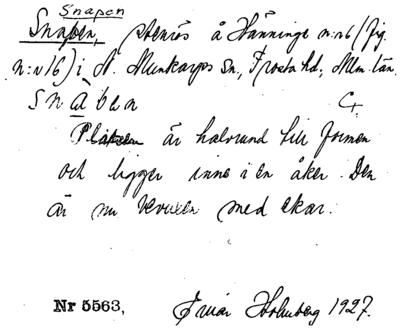 Snapen
Snapen, stenrös å Hänninge n:o 6 (fig.
n:o 16) i N. Munkarps sn, Frosta hd, Mlm län.
snàben C.
Platsen är halvrund till formen
och ligger inne i en åker. Den
är nu bevuxen med ekar.
Nr 5563, Holmberg 1927.